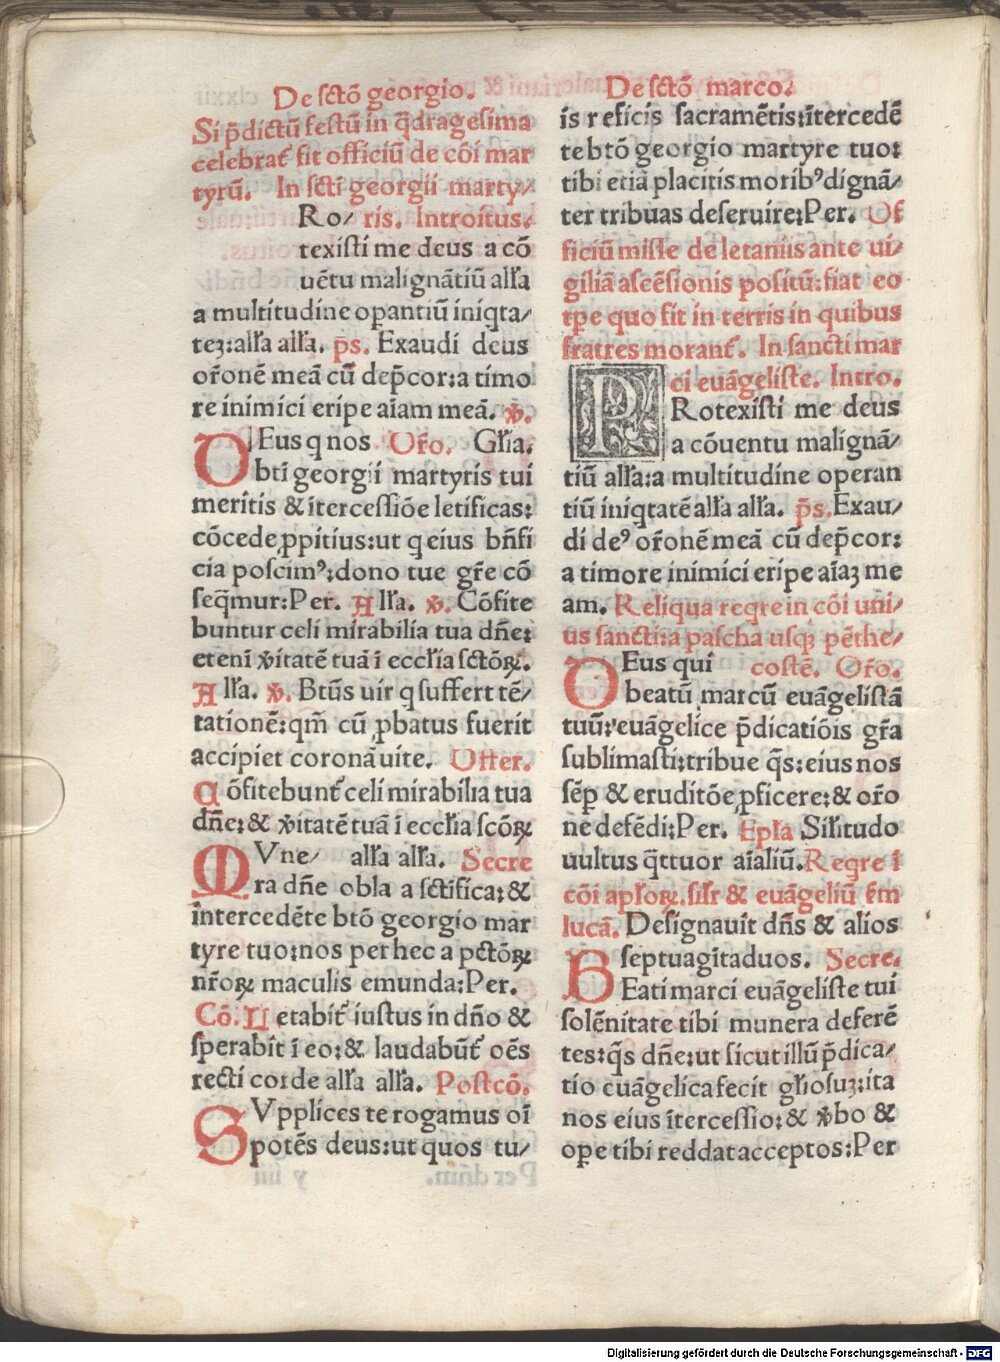 De sctō georgio.
Si p̄dictū festū in q̄dragesima
celebrat᷑ fit officiū de cōi mar
tyrū. In scti georgii marty/
Ro/ ris. Introitus.
texisti me deus a cō
uētu malignātiū alľa
a multitudine opantiū iniqta/
teʒ:alľa alľa. p̄s. Exaudi deus
oŕonē meā cū dep̄cor:a timo
re inimici eripe aīam meā. ꝟ.
DEus q nos Oŕo. Gľia.
bti georgii martyris tui
meritis & ītercessiōe letificas:
cōcede ꝓpitius:ut q eius bn̄fi
cia poscimꝰ:dono tue gŕe cō
seq̄mur:Per. Alľa. ꝟ. Cōfite
buntur celi mirabilia tua dn̄e:
eteni ꝟitatē tuā ī eccľia sctōꝝ.
Alľa. ꝟ. Btūs uir q suffert tē/
tationē:qm̄ cū ꝓbatus fuerit
accipiet coronā uite. Offer.
Cōfitebunt᷑ celi mirabilia tua
dn̄e:& ꝟitatē tuā ī eccľia scōꝝ
MVne/ alľa alľa. Secre
ra dn̄e obla a sctifica:&
intercedēte btō georgio mar
tyre tuo:nos per hec a pctōꝝ
nŕoꝝ maculis emunda:Per.
Cō. Letabit᷑ iustus in dn̄o &
sperabit ī eo:& laudabūt᷑ oēs
recti corde alľa alľa. Postcō.
SVpplices te rogamus oī
potēs deus:ut quos tu/
De sctō marco.
is reficis sacramētis:ītercedē
te btō georgio martyre tuo:
tibi etiā placitis moribꝰ dignā/
ter tribuas deseruire:Per. Of
ficiū misse de letaniis ante ui/
giliā ascēsionis positū:fiat eo
rpe quo fit in terris in quibus
fratres morant᷑. In sancti mar
ci euāgeliste. Intro.
PRotexisti me deus
a cōuentu malignā/
tiū alľa:a multitudine operan
tiū iniqtatē alľa alľa. p̄s. Exau/
di deꝰ oŕonē meā cū dep̄cor:
a timore inimici eripe aīaʒ me
am. Reliqua reqre in cōi uni/
us sancti:a pascha usqꝫ pēthe/
DEus qui costē. Oŕo.
beatū marcū euāgelistā
tuū:euāgelice p̄dicatiōis gŕa
sublimasti:tribue q̄s:eius nos
sēp & eruditōe ꝓficere:& oŕo
ne defēdi:Per. Epľa Siľitudo
uultus q̄ttuor aīaliū. Reqre ī
cōi apľoꝝ. siľr & euāgeliū ẜm
lucā. Designauit dn̄s & alios
septuagitaduos. Secre.
BEati marci euāgeliste tui
solēnitate tibi munera deferē
tes:q̄s dn̄e:ut sicut illū p̄dica/
tio euāgelica fecit gľiosuʒ:ita
nos eius ītercessio:& ꝟbo &
ope tibi reddat acceptos:Per
Digitalisierung gefördert durch die Deutsche Forschungsgemeinschaft - DFG